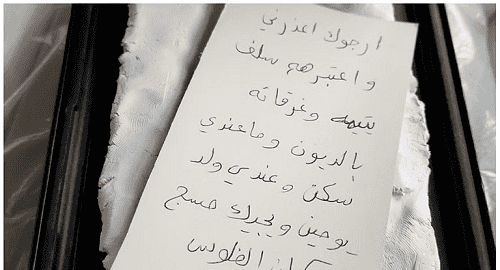 ارجوك اعذرني
واعتبرهه سلف
يتيمه وغرقانه
بالديون وماعندي
سكن وعندي ولد
يوحين ويجيك مسج
الفلوس